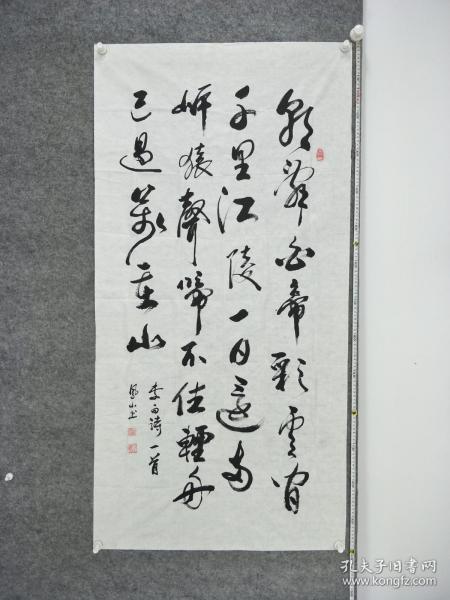 朝辭白帝彩雲間
千里江陵一日還兩
岸猿聲啼不住輕舟
已過萬重山
李白詩一首
山書
孔夫子旧书网
www.kongfz.com